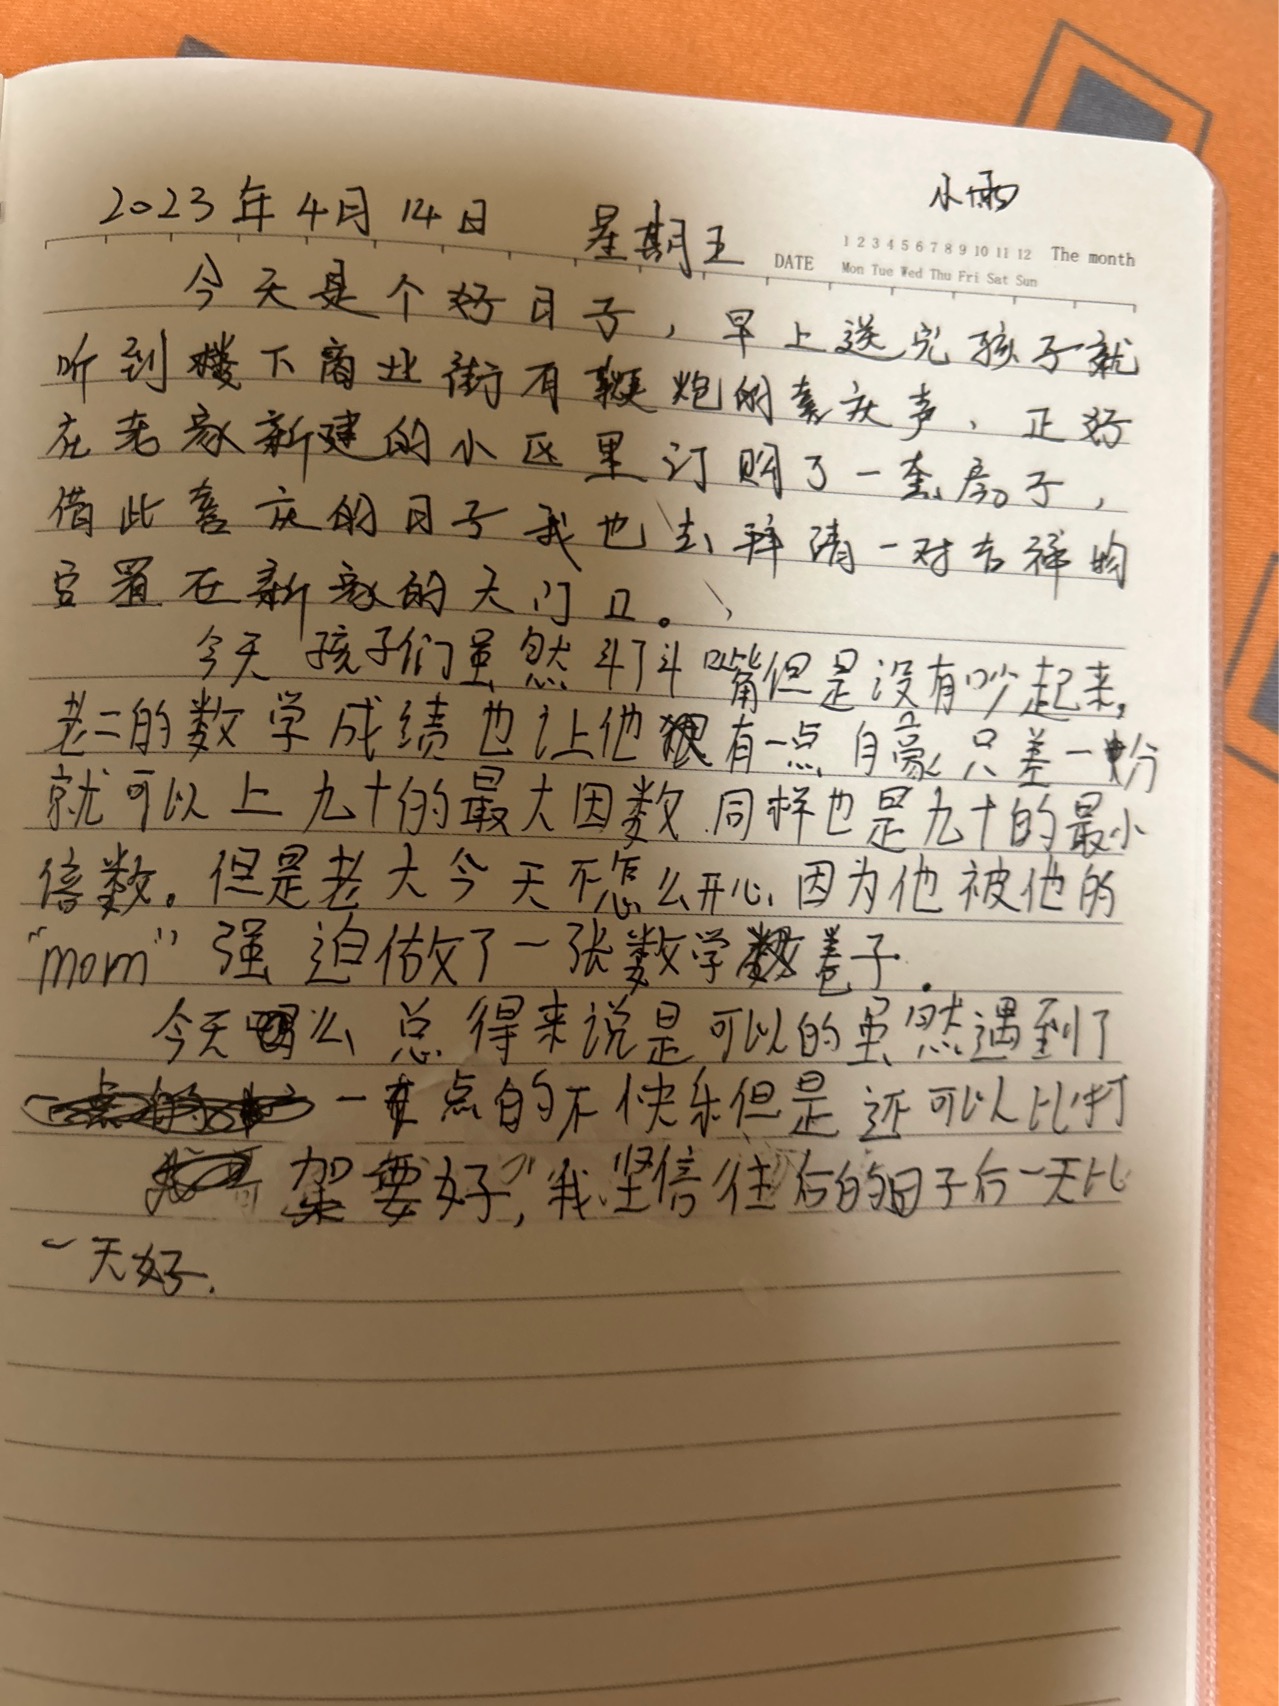 小雨
2023年4月14日 星期五 DATE 1 2 3 4 5 6 7 8 9 10 11 12 The month
Mon Tue Wed Thu Fri Sat Sun
今天是个好日子，早上送完孩子就
听到楼下商业街有鞭炮的喜庆声，正好
在老家新建的小区里订购了一套房子，
借此喜庆的日子我也去拜请一对吉祥物
安置在新家的大门口。
今天孩子们虽然斗了斗嘴但是没有吵起来，
老二的数学成绩也让他有一点自豪只差一分
就可以上九十的最大因数同样也是九十的最小
倍数。但是老大今天不怎么开心，因为他被他的
"mom"强迫做了一张数学卷子.
今天么总得来说是可以的虽然遇到了
一点的不快乐但是还可以比"打
架要好"，我坚信往后的日子后一天比
一天好.